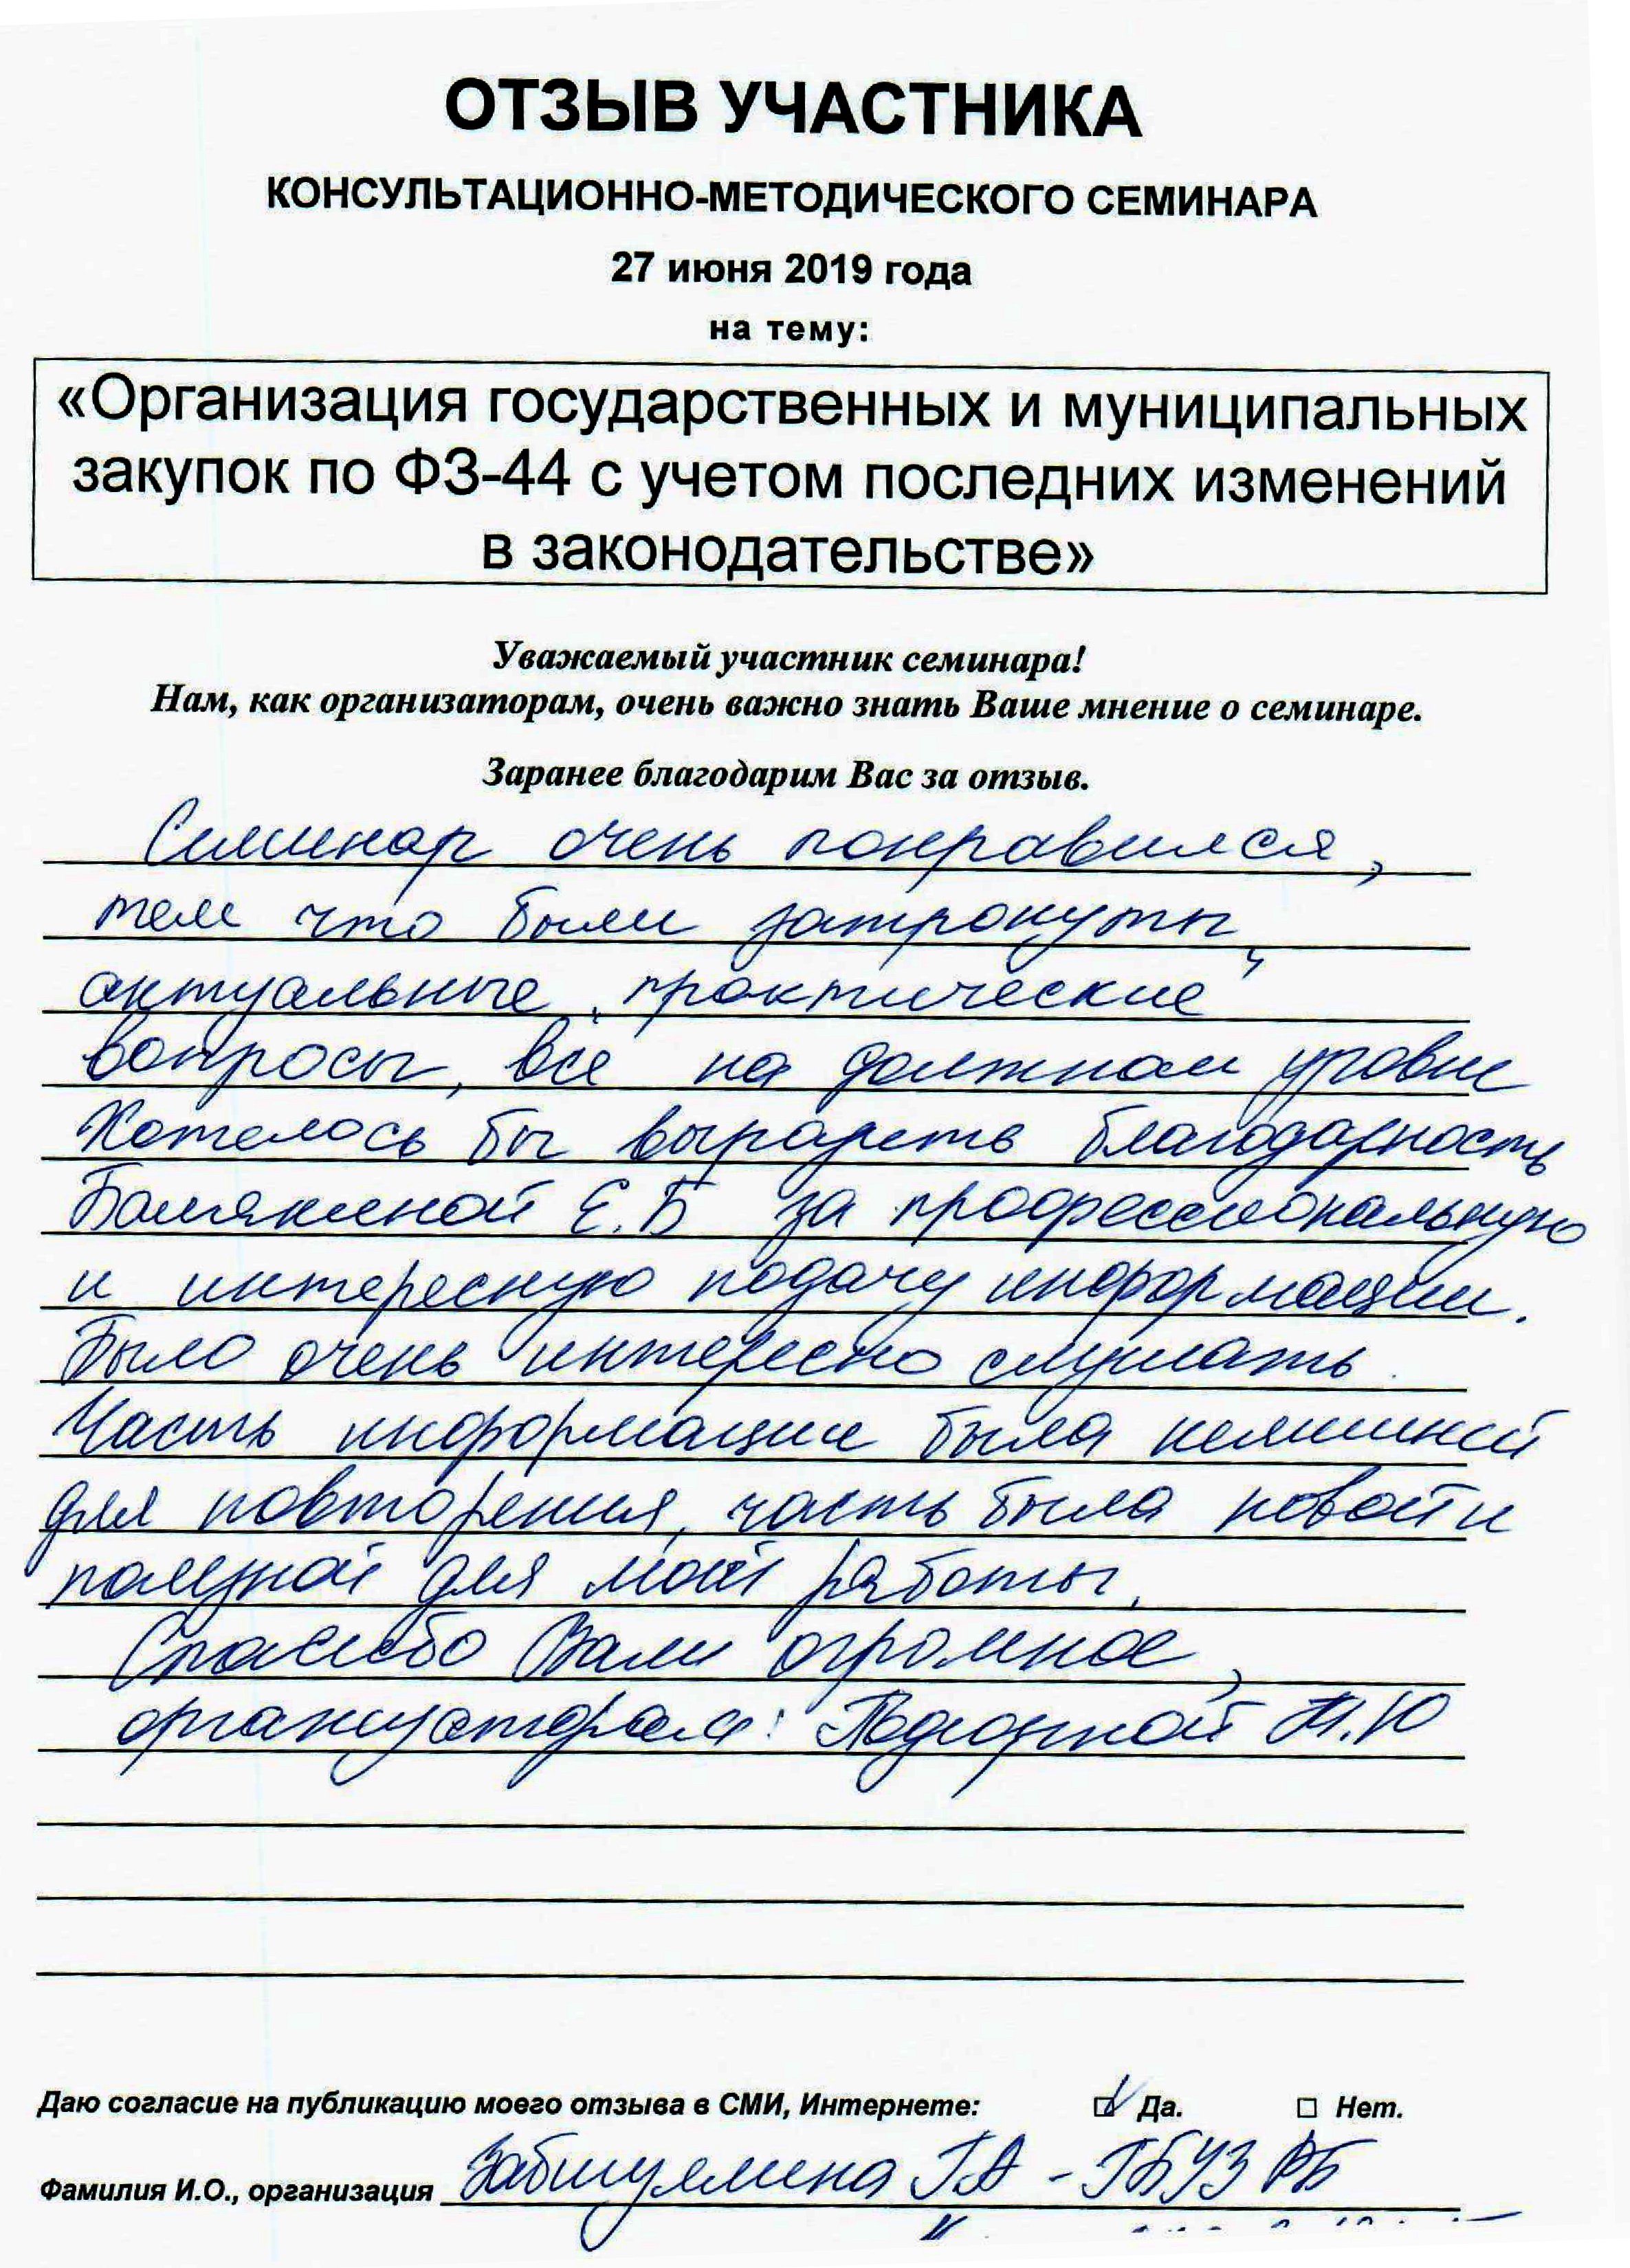 ОТЗЫВ УЧАСТНИКА
КОНСУЛЬТАЦИОННО-МЕТОДИЧЕСКОГО СЕМИНАРА
27 июня 2019 года
на тему:
«Организация государственных и муниципальных
закупок по ФЗ-44 с учетом последних изменений
в законодательстве»
Уважаемый участник семинара!
Нам, как организаторам, очень важно знать Ваше мнение о семинаре.
Заранее благодарим Вас за отзыв.
Семинар очень понравился,
тем что были затронуты
актуальные "практические"
вопросы, все на должном уровне
Хотелось бы выразить благодарность
Е.Б за профессиональную
и интересную подачу информации.
Было очень интересно слушать.
Часть информации была нелишней
для повторения, часть была новой и
полезной для моей работы.
Спасибо Вам огромное,
организаторам: М.Ю
Даю согласие на публикацию моего отзыва в СМИ, Интернете: Да. Нет.
Фамилия И.О., организация Г А - ГБУЗ РБ